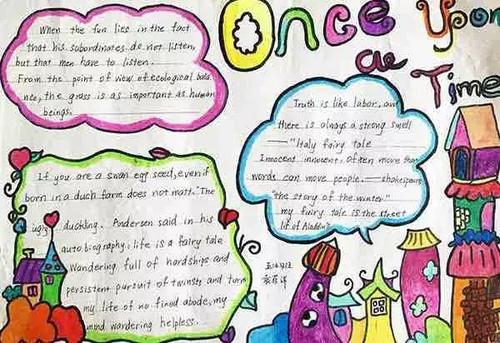 Once Upon
a
Time
When the fun lies in the fact
that his subordinates do not listen,
but that men have to listen.
From the point of view of ecological bala
nce, the grass is as important as human
beings.
Truth is like labor, and
there is always a strong smell
—"Italy fairy tale
Innocent, innocent, often more than
words can move people.—shakespeare
"the story of the winter"
my fairy tale is the street
lif of Aladdin
If you are a swan egg seed, even if
born in a duch farm does not matt. "The
ugly duckling. Andersen said in his
autobiography: life is a fairy tale
Wandering full of hardships and
persistent pursuit of twinsts and turn
my life of no fixed abode, my
mind wandering helpless.